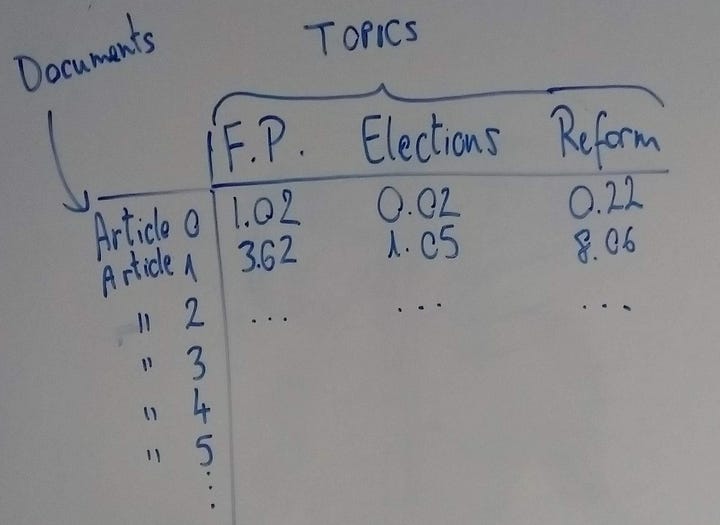 TOPICS
Documents
F.P. Elections Reform
Article 0 1.02 0.02 0.22
Article 1 3.62 1.05 8.06
" 2 ... ... ...
" 3
" 4
" 5
⋮